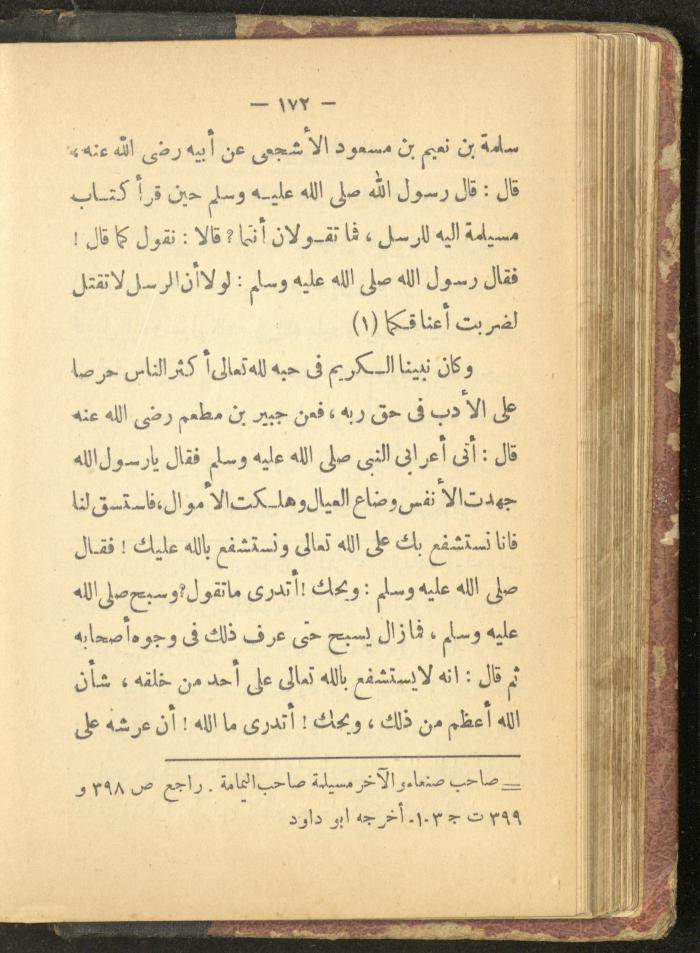 — ١٧٢ —
سلمة بن نعيم بن مسعود الأشجعى عن أبيه رضى الله عنه ،
قال : قال رسول الله صلى الله عليه وسلم حين قرأ كتاب
مسيلمة اليه للرسل ، فما تقولان أنتما ? قالا : نقول كما قال !
فقال رسول الله صلى الله عليه وسلم : لولا أن الرسل لا تقتل
لضربت أعناقكما (١)
وكان نبينا الكريم فى حبه لله تعالى أكثر الناس حرصا
على الأدب فى حق ربه ، فعن جبير بن مطعم رضى الله عنه
قال : أتى أعرابى النبى صلى الله عليه وسلم فقال يارسول الله
جهدت الأنفس وضاع العيال وهلكت الأموال ، فاستسق لنا
فانا نستشفع بك على الله تعالى ونستشفع بالله عليك ! فقال
صلى الله عليه وسلم : ويحك ! أتدرى ماتقول ? وسبح صلى الله
عليه وسلم ، فمازال يسبح حتى عرف ذلك فى وجوه أصحابه
ثم قال : انه لايستشفع بالله تعالى على أحد من خلقه ، شأن
الله أعظم من ذلك ، ويحك ! أتدرى ما الله ! أن عرشه على
= صاحب صنعاء والآخر مسيلمة صاحب اليمامة . راجع ص ٣٩٨ و
٣٩٩ ت ج ٣ -١- أخرجه ابو داود